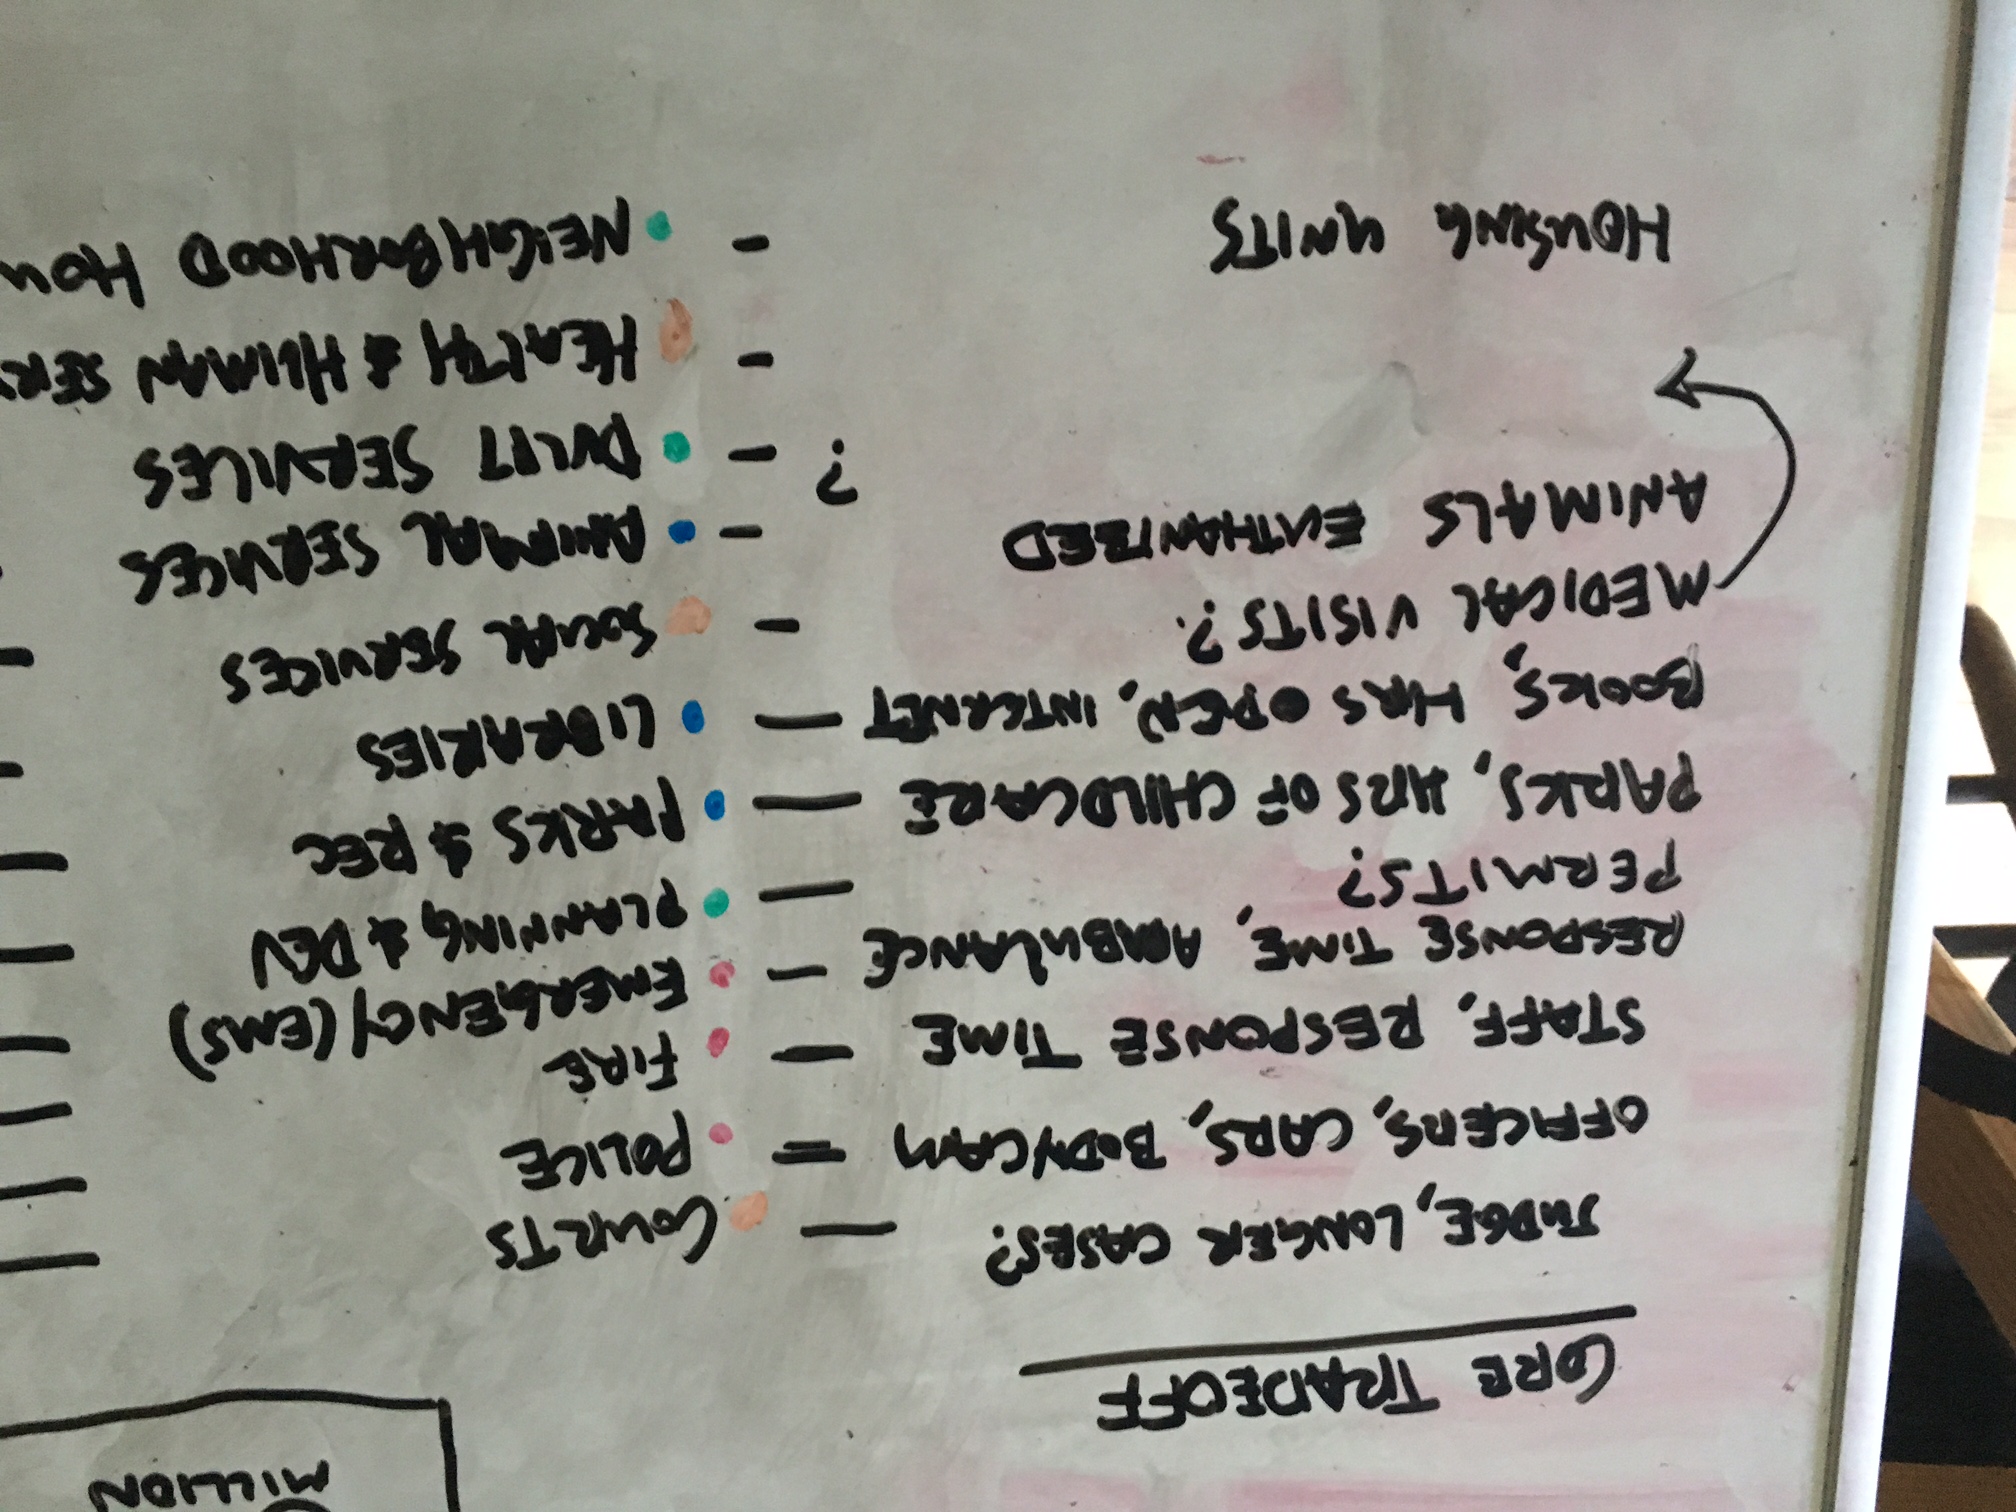 MILLION
CORE TRADEOFF
JUDGE, LONGER CASES? — COURTS
OFFICERS, CARS, BODYCAM = POLICE
STAFF, RESPONSE TIME — FIRE
RESPONSE TIME, AMBULANCE — EMERGENCY (EMS)
PERMITS? — PLANNING & DEV
PARKS, HRS OF CHILDCARE — PARKS & REC
BOOKS, HRS OPEN, INTERNET — LIBRARIES
MEDICAL VISITS? - SOCIAL SERVICES
ANIMALS EUTHANIZED - ANIMAL SERVICES
? - SERVICES
- HEALTH & HUMAN SER
HOUSING UNITS - NEIGHBORHOOD HOU